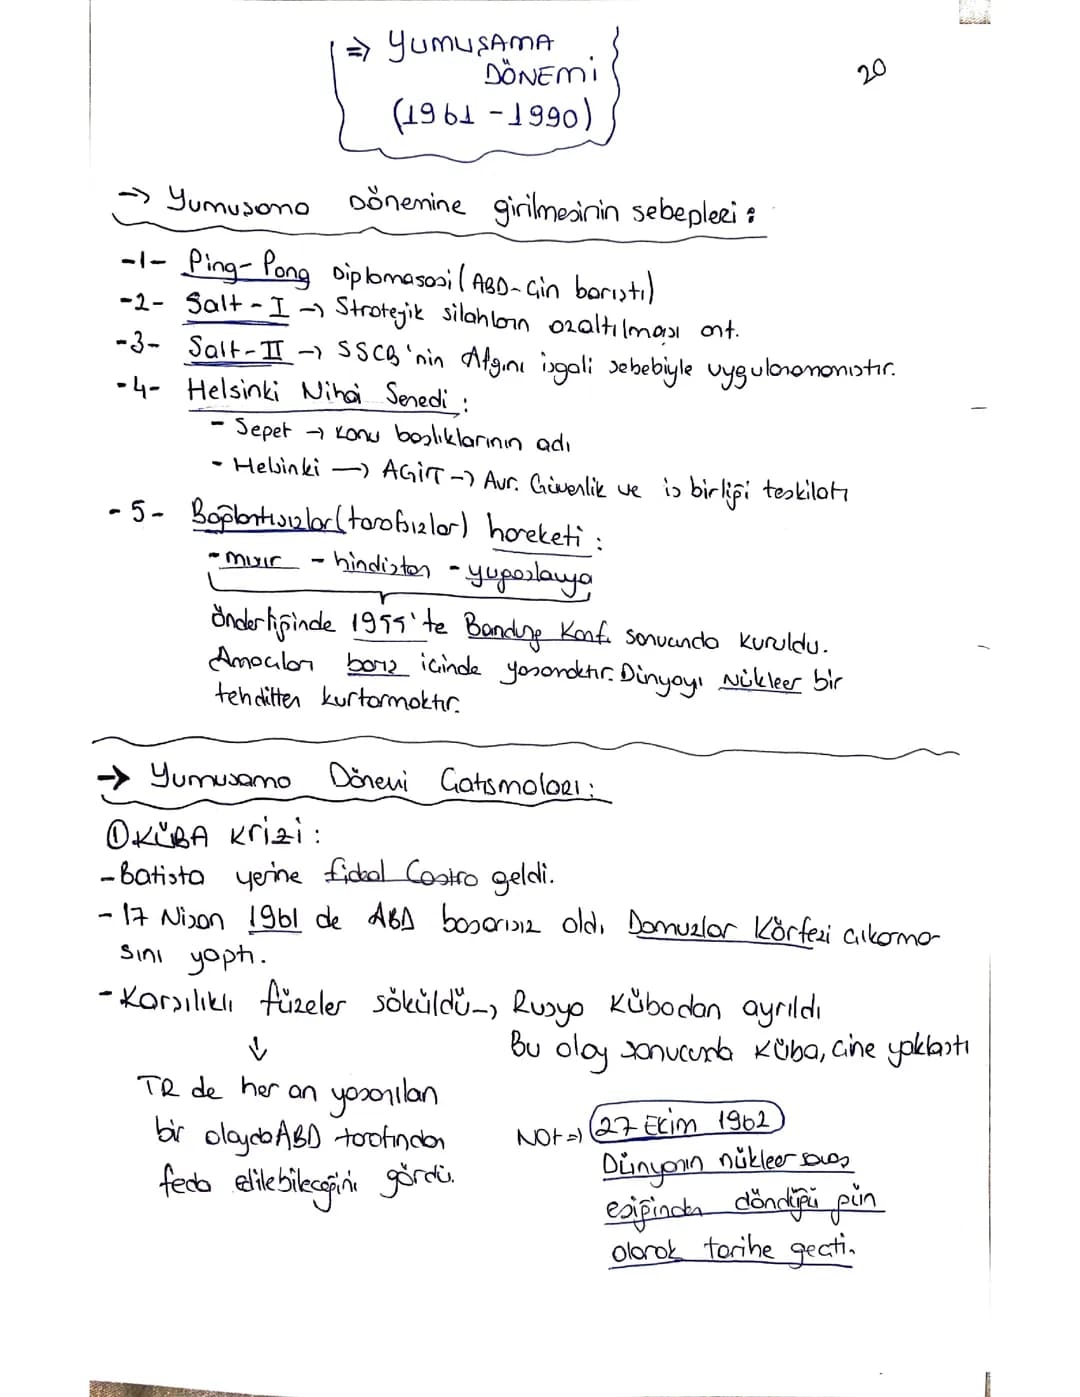 ⇒ YUMUŞAMA
DÖNEMİ
(1961 - 1990)
20
→ Yumuşama Dönemine girilmesinin sebepleri :
-1- Ping-Pong Diplomasasi (ABD-Çin barıştı)
-2- Salt-I → Stratejik silahların azaltılması ant.
-3- Salt-II → SSCB'nin Afganı işgali sebebiyle uygulanamamıştır.
-4- Helsinki Nihai Senedi :
- Sepet → konu başlıklarının adı
- Helsinki → AGİT → Avr. Güvenlik ve iş birliği teşkilatı
-5- Bağlantısızlar (tarafsızlar) hareketi :
- mısır - hindistan - yugoslavya
önderliğinde 1955'te Bandung Konf. sonucunda kuruldu.
Amaçları barış içinde yaşamaktır. Dünyayı Nükleer bir
tehditten kurtarmaktır.
→ Yumuşama Dönemi Çatışmaları :
① KÜBA krizi :
- Batista yerine fidel Castro geldi.
- 17 Nisan 1961 de ABD başarısız oldı Domuzlar Körfezi çıkarma-
sını yaptı.
- Karşılıklı füzeler söküldü → Rusya Kübadan ayrıldı
↓
Bu olay sonucunda Küba, Çine yaklaştı
TR de her an yaşanılan
bir olayda ABD tarafından
feda edilebileceğini gördü.
NOT ⇒ 27 Ekim 1962
Dünyanın nükleer savaş
eşiğinden döndüğü gün
olarak tarihe geçti.